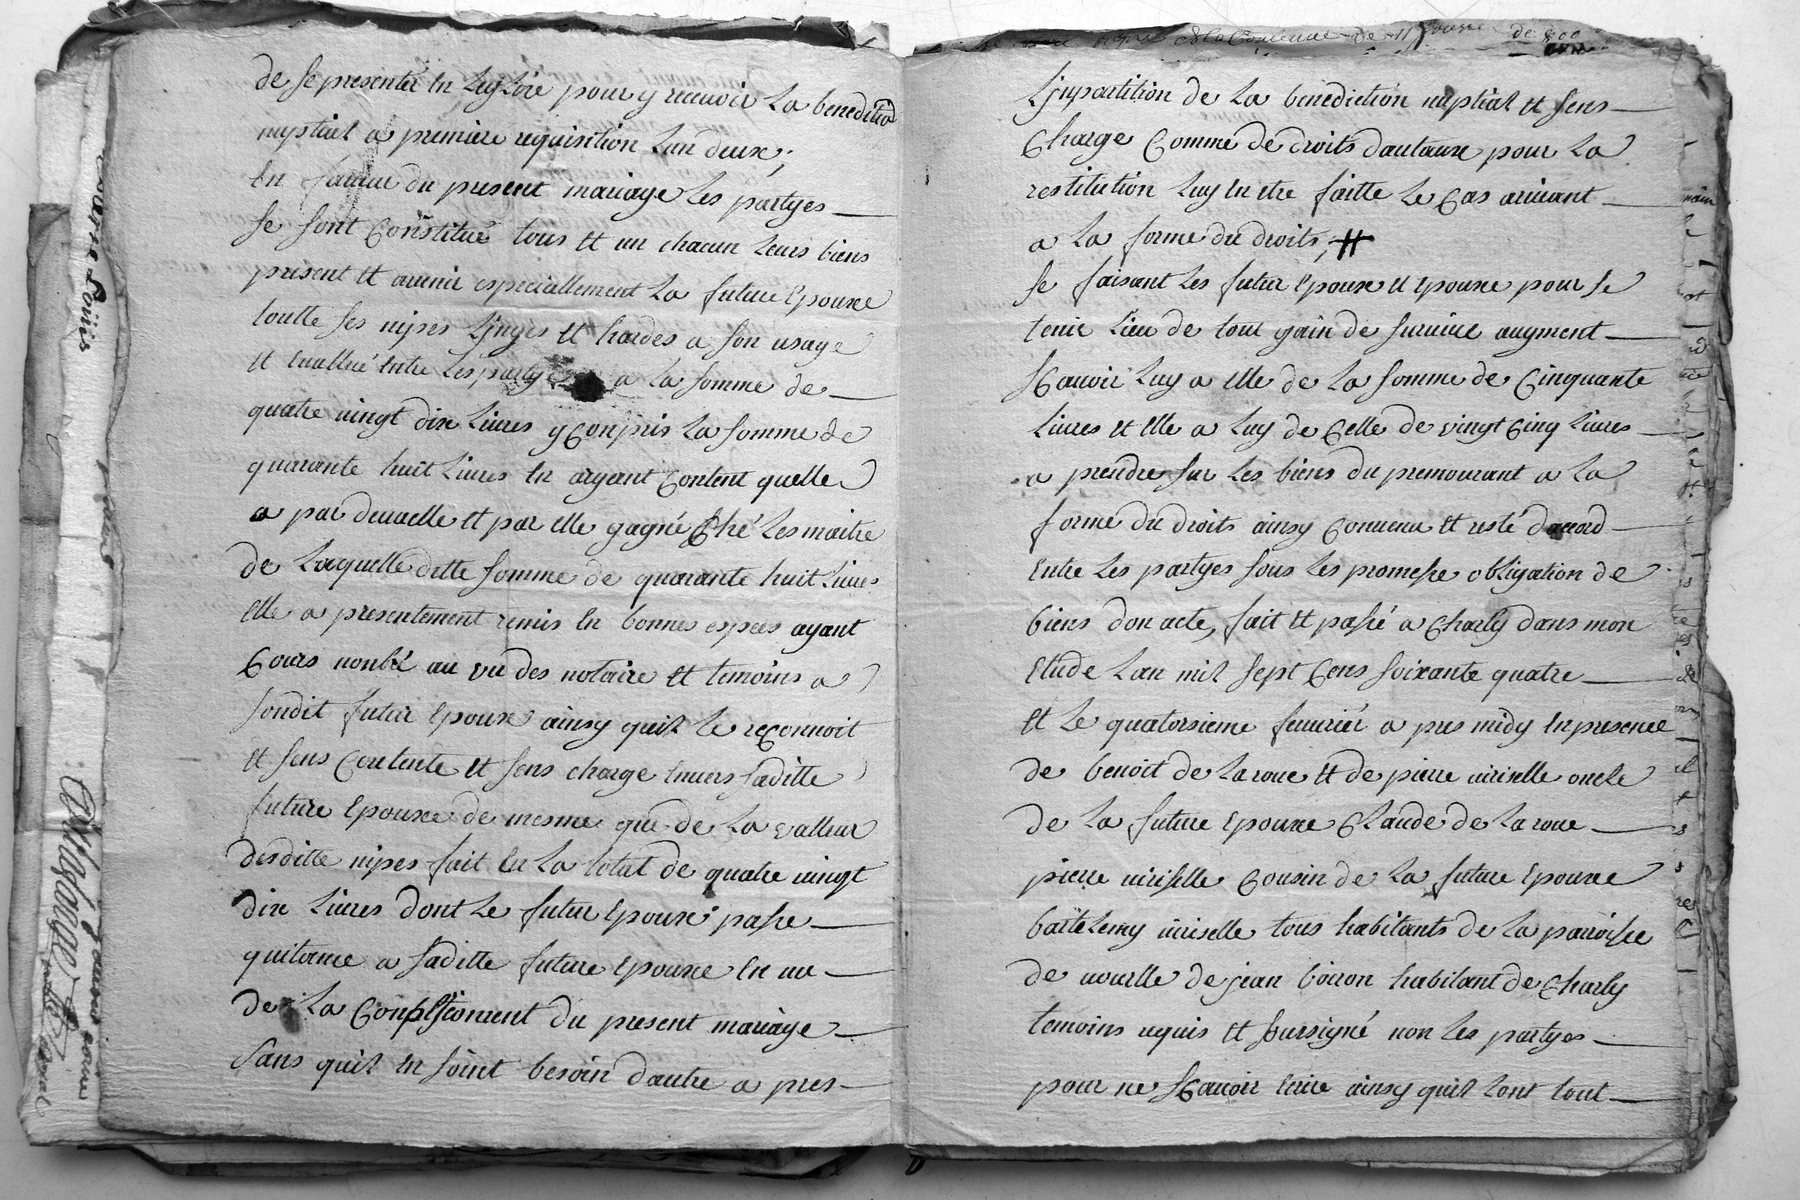 de se presenter en leglise pour y recevoir la benedition
nuptial a premiere requisition lun deux;
en faveur du present mariage les partyes
se sont Constitué tous et un chacun leurs biens
present et avenir especiallement la future Epouxe
toutte ses nipes linges et hardes a son usage
et evallué entre les partyes a la somme de
quatre vingt dix livres y Conpris la somme de
quarante huit livres en argent Content quelle
a par devaelle et par elle gagné Ché les maitre
de laquelle ditte somme de quarante huit livres
elle a presentement remis en bonnes especes ayant
Cours nonbré au vu des notaire et temoins a
sondit futur Epoux ainsy quil le reConnoit
et sens Contente et sens charge envers saditte
future Epouxe de mesme que de la valleur
desditte nipes fait en la total de quatre vingt
dix livres dont le futur Epoux passe
quitance a saditte future Epouxe en vu
de la du present mariage
sans quil en soint besoin dautre a pres
linpartition de la benediction nuptial et sens
Charge Comme de droits dautaux pour la
restitution luy en etre faitte le Cas arivant
a la forme du droits;
se faisant les futur Epoux et Epouxe pour se
tenir lieu de tout gain de survive augment
sCavoir luy a elle de la somme de Cinquante
livres et elle a luy de Celle de vingt Cinq livres
a prendre sur les biens du premourant a la
forme du droits ainsy Convenu et resté dacord
entre les partyes sous les promesse obligation de
biens don acte, fait et passé a Charly dans mon
Etude lan mil sept Cens soixante quatre
et le quatorsieme fevriér a pres midy en presence
de benoit de laroue et de pierre viriselle oncle
de la future Epouxe Claude de laroue
pierre viriselle Cousin de la future Epouxe
bartelemy viriselle tous habitants de la parroisse
de vourlle de jean boiron habitant de Charly
temoins requis et soursigné non les partyes
pour ne sCavoir Ecrire ainsy quil lont tout